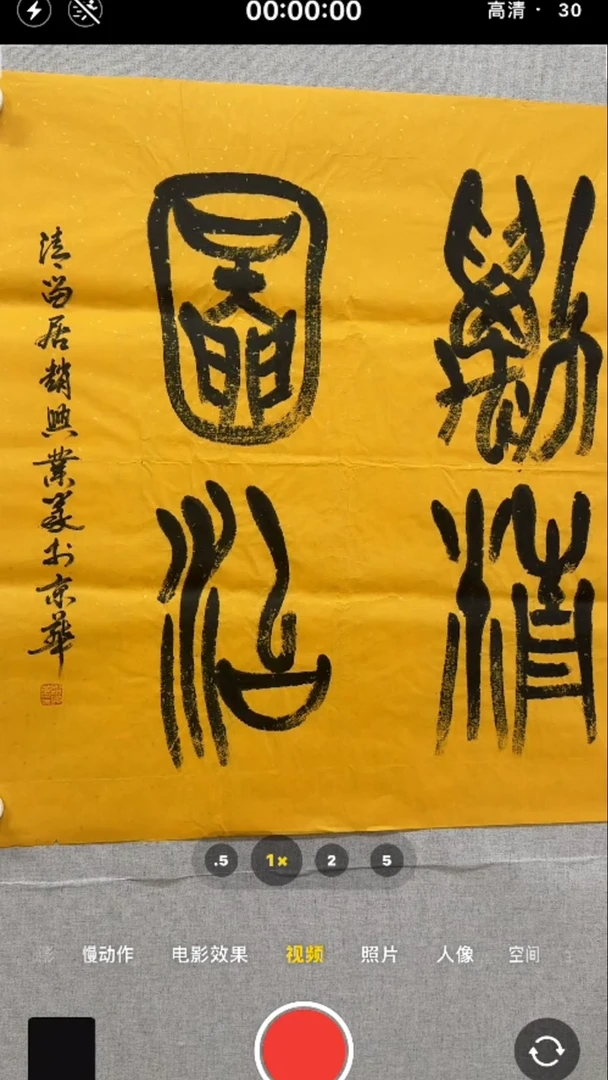 00:00:00
高清 · 30
勵精
圖治
趙興業篆於京華
.5 1× 2 5
慢动作 电影效果 视频 照片 人像 空间